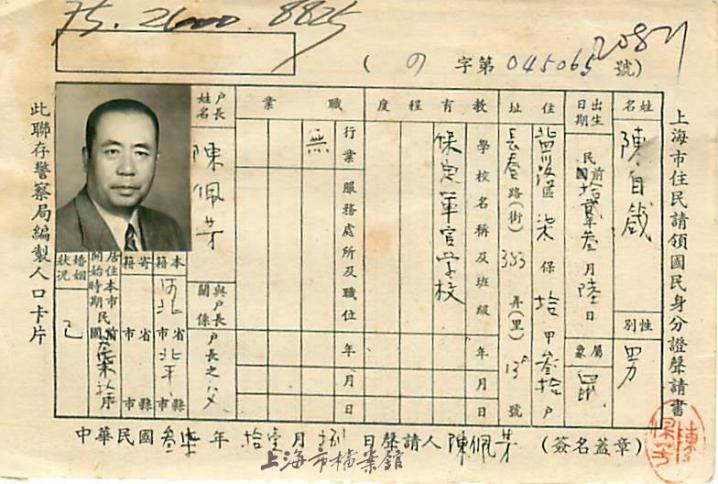 75. 2600. 8825
2087
( の 字第 045065 號)
上海市住民請領國民身分證聲請書
姓名 陳自箴
性別 男
出生日期 民國前拾貳年叁月陸日
屬象 鼠
住址 柒保拾甲叁拾戶
長春路(街)353弄(里)13號
教育程度
學校名稱及班級
保定軍官學校
年月日
職業
行業
無
服務處所及職位
年月日
戶長姓名 陳佩芳
與戶長關係 戶長之父
本籍 河北省北平市縣
寄籍 省市 縣市
居住本市開始時期 民國前
婚姻狀況 已
此聯存警察局編製人口卡片
中華民國叁 年拾壹月 日聲請人 陳佩芳 (簽名蓋章)
上海市檔案館